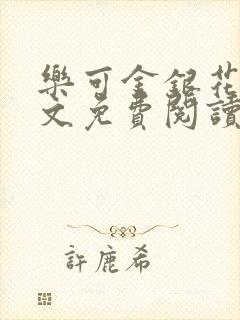 樂可金銀花
文免費閱讀
許鹿希